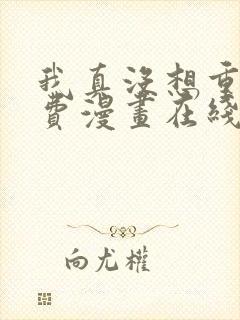 我真没想重
费漫画在线
向尤权